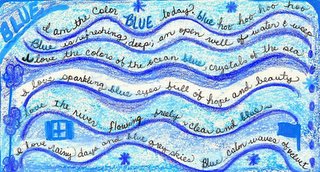 BLUE
I am the color BLUE today? blue hoo hoo hoo hoo
Blue is refreshing deep; an open well of water to weep
I love the colors of the ocean blue crystals of the sea
I love sparkling blue eyes full of hope and beauty
love the river flowing freely & clear and blue
I love rainy days and blue grey skies Blue calm waves